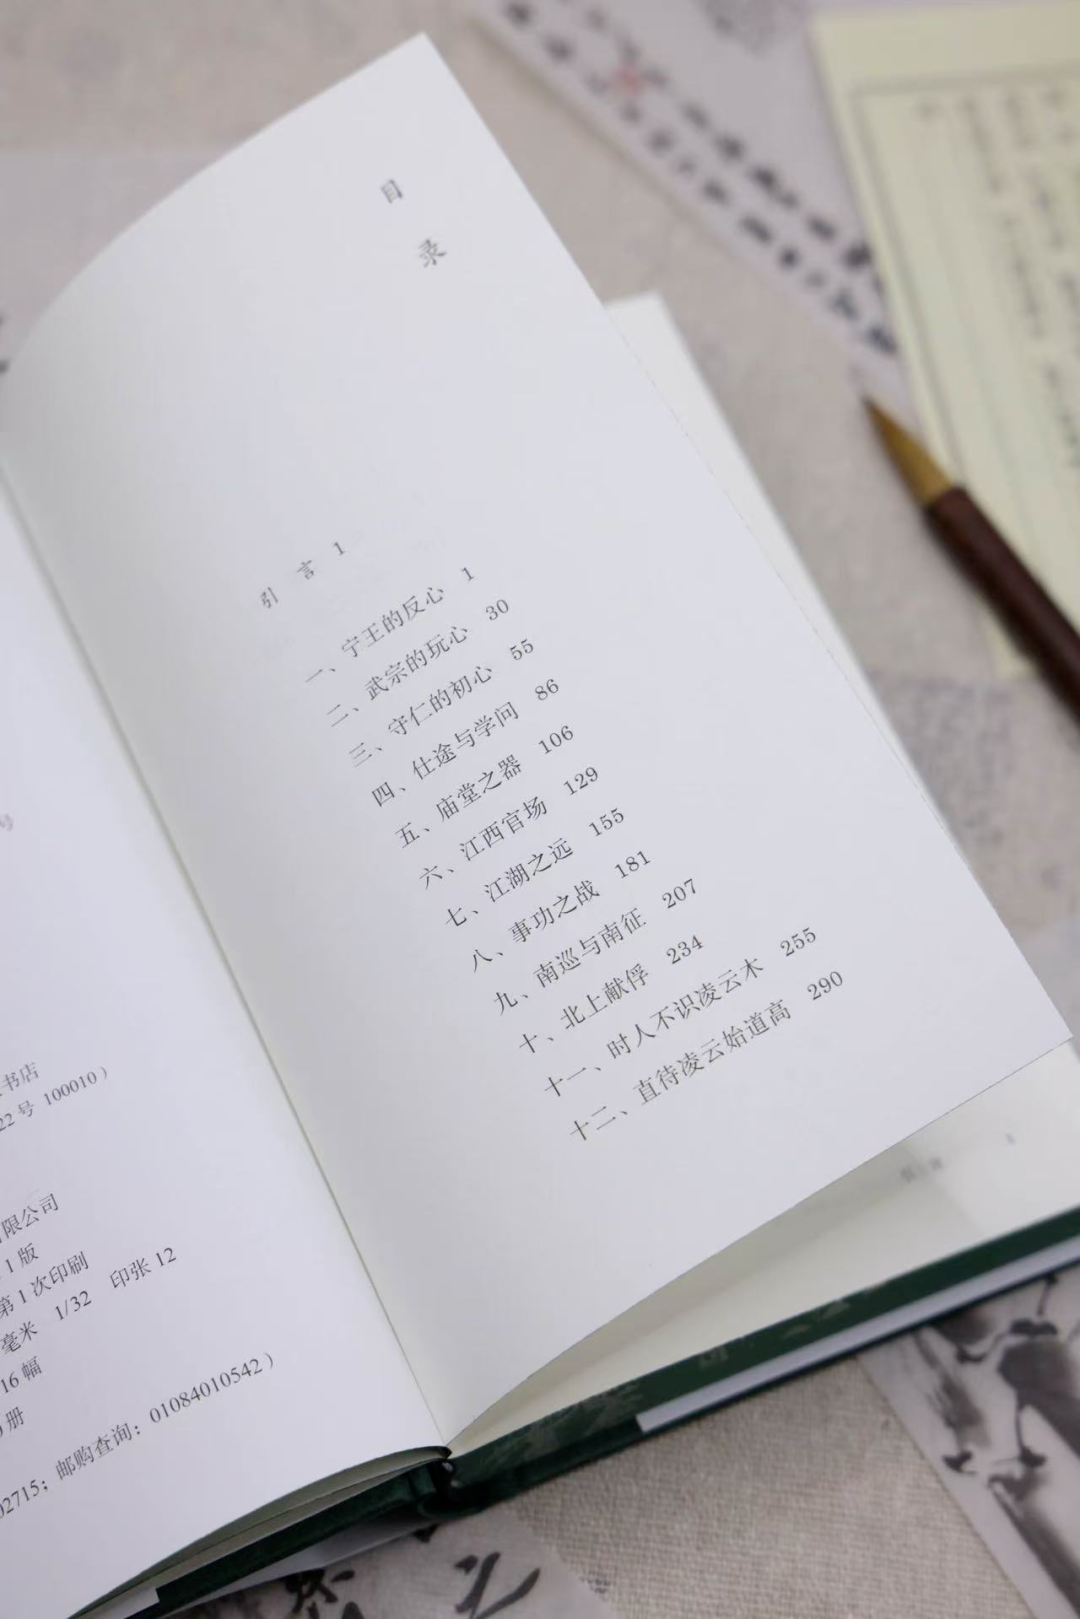 目录
引言 1
一、宁王的反心 1
二、武宗的玩心 30
三、守仁的初心 55
四、仕途与学问 86
五、庙堂之器 106
六、江西官场 129
七、江湖之远 155
八、事功之战 181
九、南巡与南征 207
十、北上献俘 234
十一、时人不识凌云木 255
十二、直待凌云始道高 290
号
书店
22号 100010）
限公司
1版
第1次印刷
毫米 1/32 印张 12
16幅
册
02715；邮购查询：01084010542）